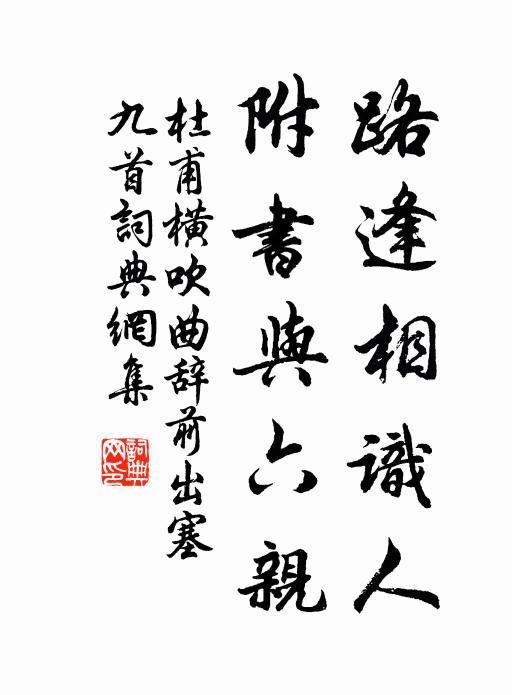 路逢相識人
附書與六親
杜甫橫吹曲辞前出塞
九首詞典網集
詞典
网印